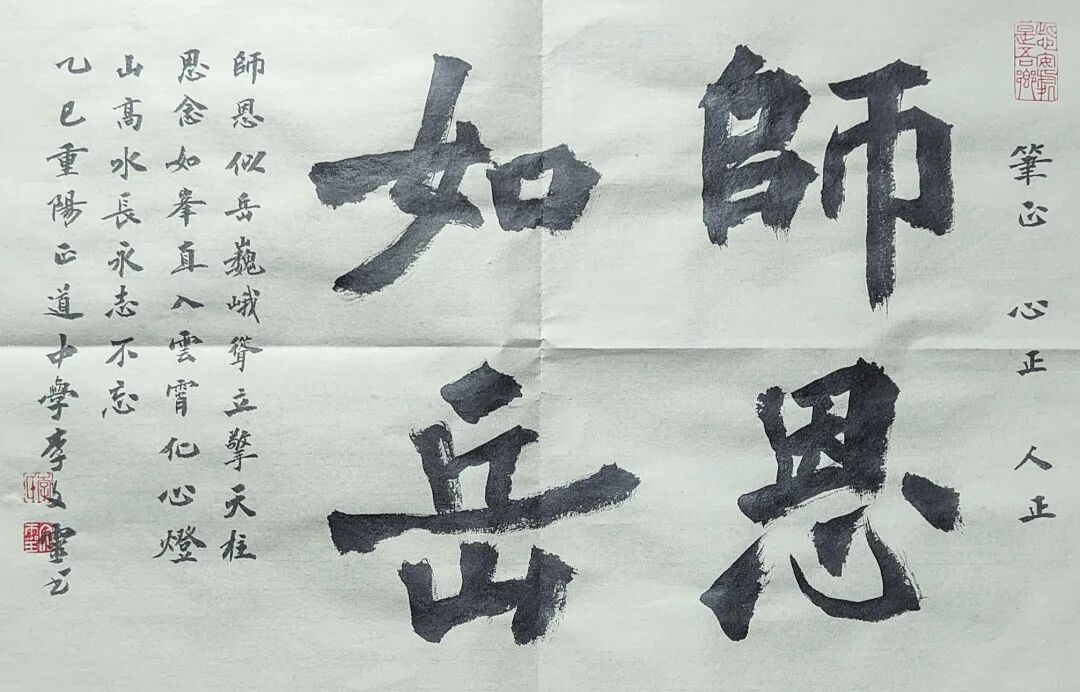 此心安處是吾鄉
筆正 心正 人正
師恩
如岳
師恩似岳巍峨聳立擎天柱
思念如峯直入雲霄化心燈
山高水長永志不忘
乙巳重陽正道中學李文靈书